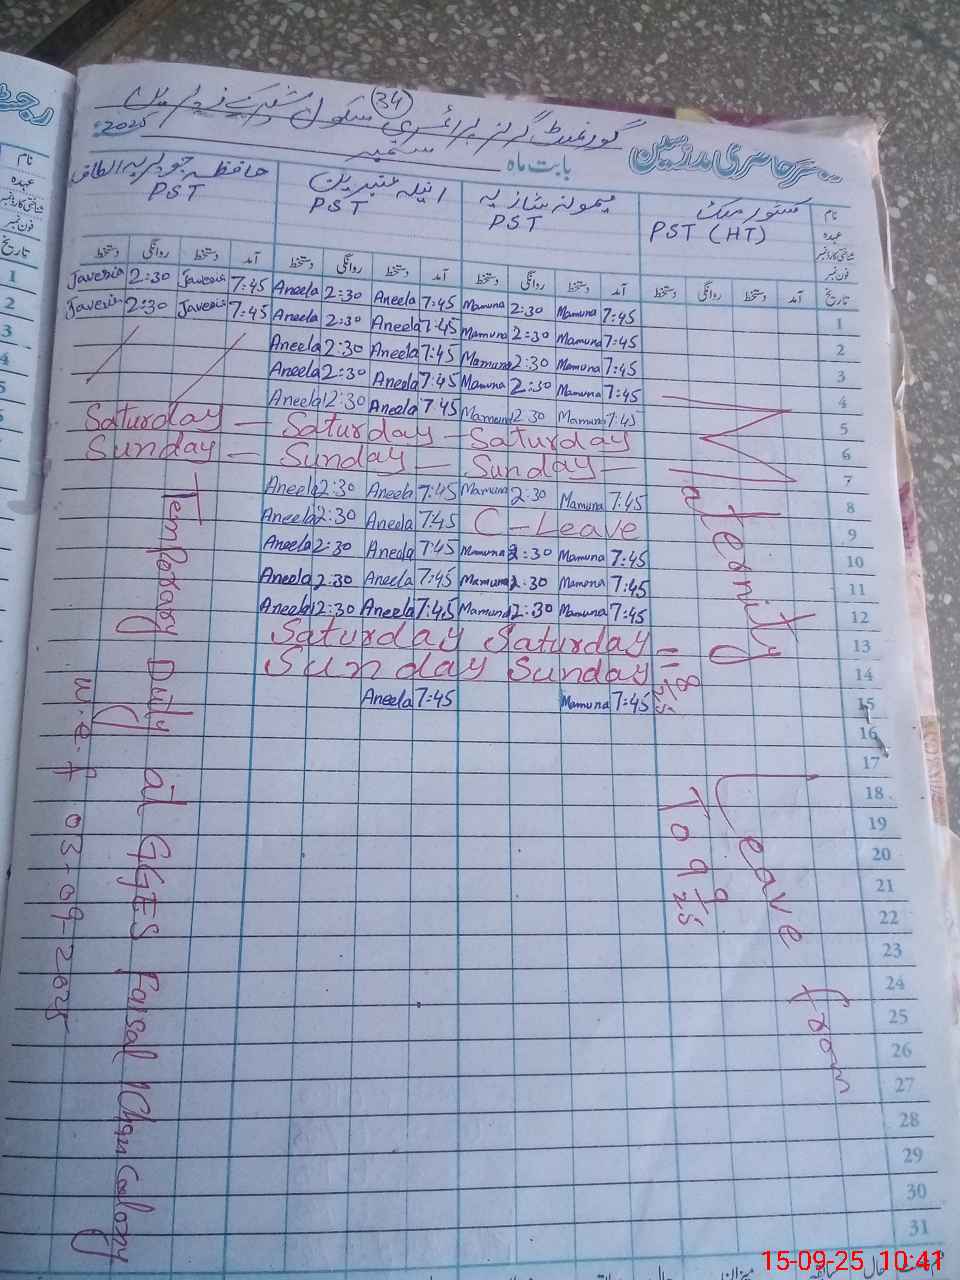 34
گورنمنٹ گرلز پرائمری سکول
رجسٹر حاضری مدرسین
بابت ماہ ستمبر 2025ء
نام
عہدہ
شناختی کارڈ نمبر
فون نمبر
PST (HT)
میمونہ شازیہ
PST
انیلہ عنبرین
PST
حافظہ جویریہ الطاف
PST
تاریخ آمد دستخط روانگی دستخط آمد دستخط روانگی دستخط آمد دستخط روانگی دستخط آمد دستخط روانگی دستخط
Javeria 2:30 Javeria 7:45 Aneela 2:30 Aneela 7:45 Mamuna 2:30 Mamuna 7:45 1
Javeria 2:30 Javeria 7:45 Aneela 2:30 Aneela 7:45 Mamuna 2:30 Mamuna 7:45 2
Aneela 2:30 Aneela 7:45 Mamuna 2:30 Mamuna 7:45 3
Aneela 2:30 Aneela 7:45 Mamuna 2:30 Mamuna 7:45 4
Aneela 12:30 Aneela 7:45 Mamuna 12:30 Mamuna 7:45 5
Saturday — Saturday — Saturday 6
Sunday — Sunday — Sunday — 7
Aneela 2:30 Aneela 7:45 Mamuna 2:30 Mamuna 7:45 8
Aneela 2:30 Aneela 7:45 C-Leave 9
Aneela 2:30 Aneela 7:45 Mamuna 2:30 Mamuna 7:45 10
Aneela 2:30 Aneela 7:45 Mamuna 2:30 Mamuna 7:45 11
Aneela 12:30 Aneela 7:45 Mamuna 12:30 Mamuna 7:45 12
Saturday Saturday 13
Sunday Sunday 14
Aneela 7:45 Mamuna 7:45 15
16
17
18
19
20
21
22
23
24
25
26
27
28
29
30
31
Maternity
Leave from
To 9 9 25
Temporary Duty at GGES Faisal Colony
w.e.f 03-09-2025
رجسٹر
نام
عہدہ
شناختی کارڈ نمبر
فون نمبر
تاریخ
1
2
3
4
5
15-09-25 10:41